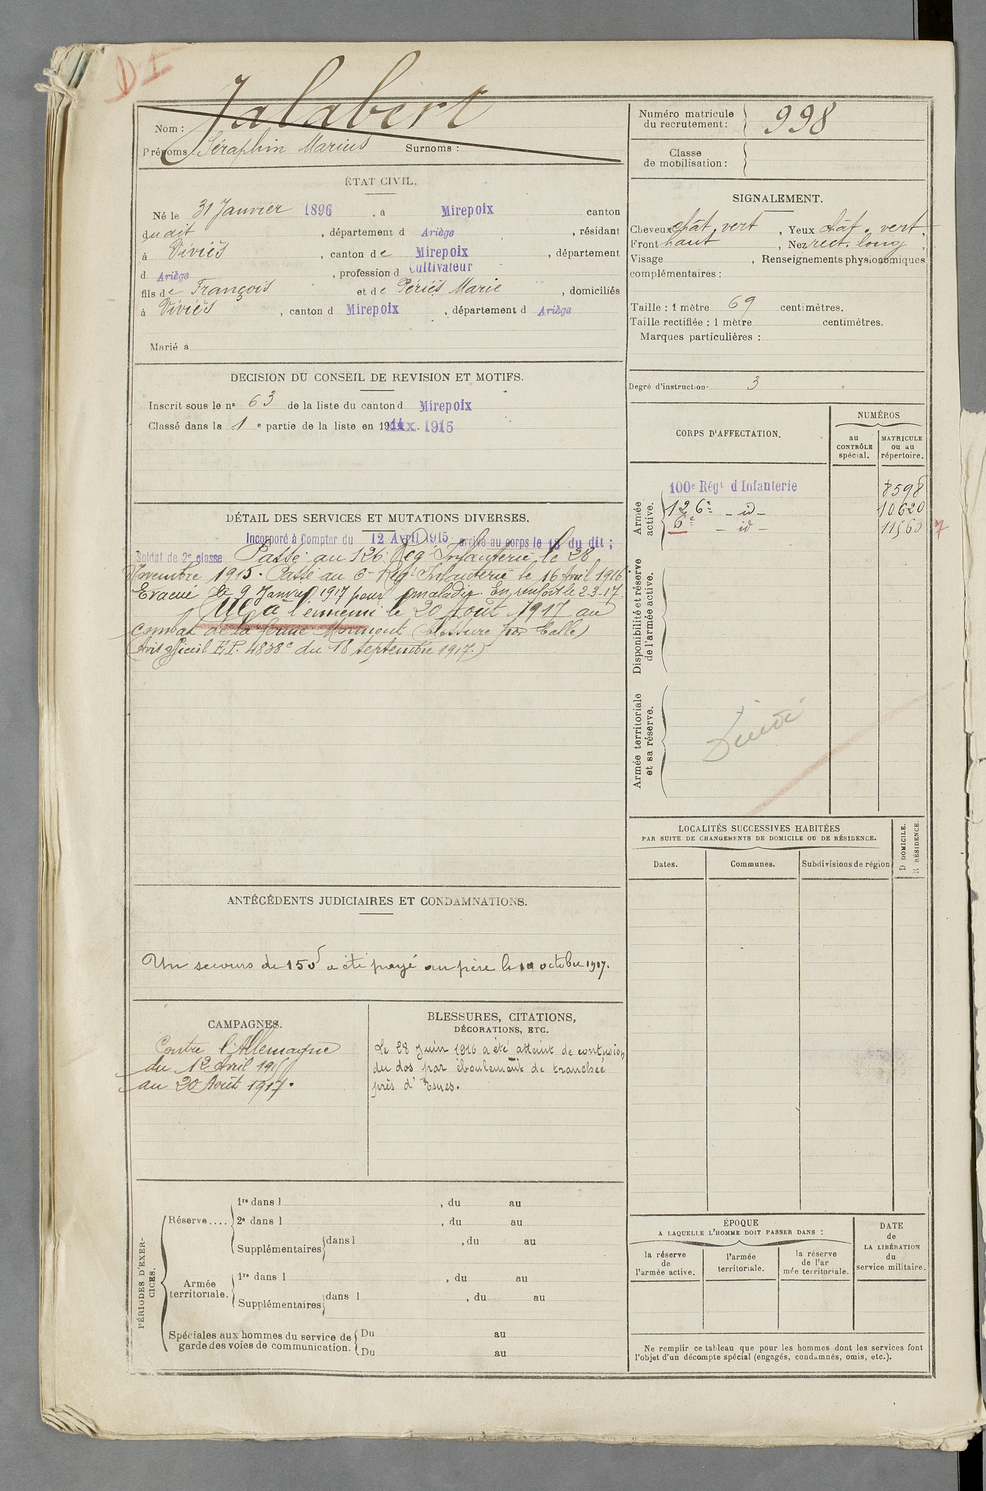 D I
Jalabert
Nom :
Prénoms : Séraphin Marius Surnoms :
Numéro matricule
du recrutement : 998
Classe
de mobilisation :
ÉTAT CIVIL.
Né le 31 Janvier 1896, à Mirepoix canton
du dit, département d Ariège, résidant
à Viviès, canton de Mirepoix, département
d Ariège, profession d Cultivateur
fils de François et de Périès Marie, domiciliés
à Viviès, canton d Mirepoix, département d Ariège
Marié à
SIGNALEMENT.
Cheveux chât. vert, Yeux chât. vert.
Front haut, Nez rect. long
Visage , Renseignements physionomiques
complémentaires :
Taille : 1 mètre 69 centimètres.
Taille rectifiée : 1 mètre centimètres.
Marques particulières :
Degré d'instruction 3
DECISION DU CONSEIL DE REVISION ET MOTIFS.
Inscrit sous le nº 63 de la liste du canton d Mirepoix
Classé dans la 1e partie de la liste en 1915
CORPS D'AFFECTATION.
NUMÉROS
au
CONTRÔLE
spécial.
MATRICULE
ou au
répertoire.
Armée
active.
100e Régt d'Infanterie 8598
126e - id - 10620
6e - id - 11563
Disponibilité et réserve
de l'armée active.
Armée territoriale
et sa réserve.
DÉTAIL DES SERVICES ET MUTATIONS DIVERSES.
Incorporé à compter du 12 Avril 1915 arrivé au corps le 13 du dit ;
Soldat de 2e classe Passé au 126 Rég. Infanterie, le 28
Novembre 1915. Passé au 6e Régt Infanterie le 16 Avril 1916
Evacué le 9 Janvier 1917 pour maladie. En renfort le 23.17.
Tué à l'ennemi le 20 Août 1917 au
combat de la ferme Mormont (blessure par balle)
(Avis officiel H.P. 4838e du 18 septembre 1917.)
LOCALITÉS SUCCESSIVES HABITÉES
PAR SUITE DE CHANGEMENTS DE DOMICILE OU DE RÉSIDENCE.
Dates.
Communes.
Subdivisions de région
D DOMICILE.
R RÉSIDENCE.
ANTÉCÉDENTS JUDICIAIRES ET CONDAMNATIONS.
Un secours de 150f a été payé au père le 10 octobre 1917.
CAMPAGNES.
Contre l'Allemagne
du 12 Avril 1915
au 20 Août 1917.
BLESSURES, CITATIONS,
DÉCORATIONS, ETC.
Le 28 juin 1916 a été atteint de contusion
du dos par éboulement de tranchée
près d'Esnes.
PÉRIODES D'EXER-
CICES.
Réserve....
1re dans l , du au
2e dans l , du au
Supplémentaires dans l , du au
Armée
territoriale.
1re dans l , du au
Supplémentaires dans l , du au
Spéciales aux hommes du service de
garde des voies de communication.
Du au
Du au
ÉPOQUE
A LAQUELLE L'HOMME DOIT PASSER DANS :
la réserve
de
l'armée active.
l'armée
territoriale.
la réserve
de l'ar
mée territoriale.
DATE
de
LA LIBÉRATION
du
service militaire.
Ne remplir ce tableau que pour les hommes dont les services font
l'objet d'un décompte spécial (engagés, condamnés, omis, etc.).